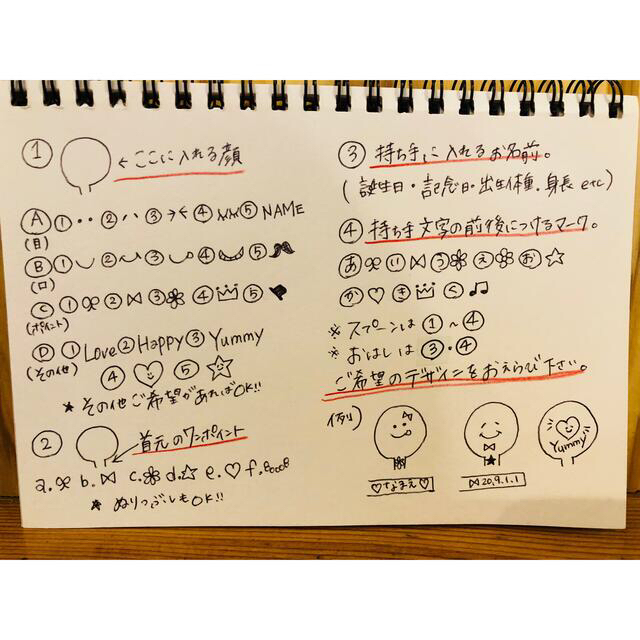 ① ←ここに入れる顔
Ⓐ ① ② ③ ④ ⑤ NAME
(目)
Ⓑ ① ② ③ ④ ⑤
(口)
Ⓒ ① ② ③ ④ ⑤
(ポイント)
Ⓓ ① Love ② Happy ③ Yummy
(その他) ④ ♡ ⑤ ☆
★ その他ご希望があればOK!!
② 首元のワンポイント
a. b.⋈ c. d.☆ e.♡ f.
★ ぬりつぶしもOK!!
③ 持ち手に入れるお名前。
(誕生日・記念日・出生体重.身長 etc)
④ 持ち手文字の前後につけるマーク。
あ い ⋈ う え お ☆
か ♡ き く ♫
※ スプーンは ① ~ ④
※ おはしは ③・④
ご希望のデザインをおえらび下さい。
例)
♡なまえ♡
⋈20.9.1.1
Yummy